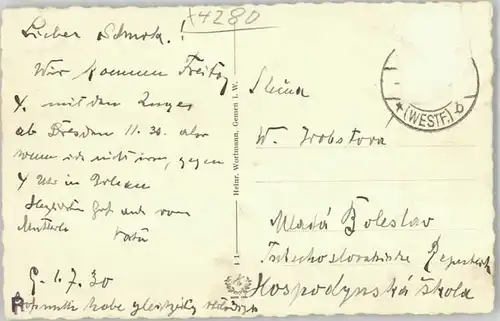 x4280
Lieber
Wir kommen Freitag
4. mit dem Zuge
ab Dresden 11.30. also
wenn ich nicht irre, gegen
4 Uhr in
Herzlichen Gruß auch von
Mutterle
Vater
G. 1.7.30
habe gleichzeitig
Heinr. Wortmann, Gemen i. W.
* (WESTF.) b
Slečna
W.
Mladá Boleslav
Tschechoslovakische Republik
Hospodyňská škola